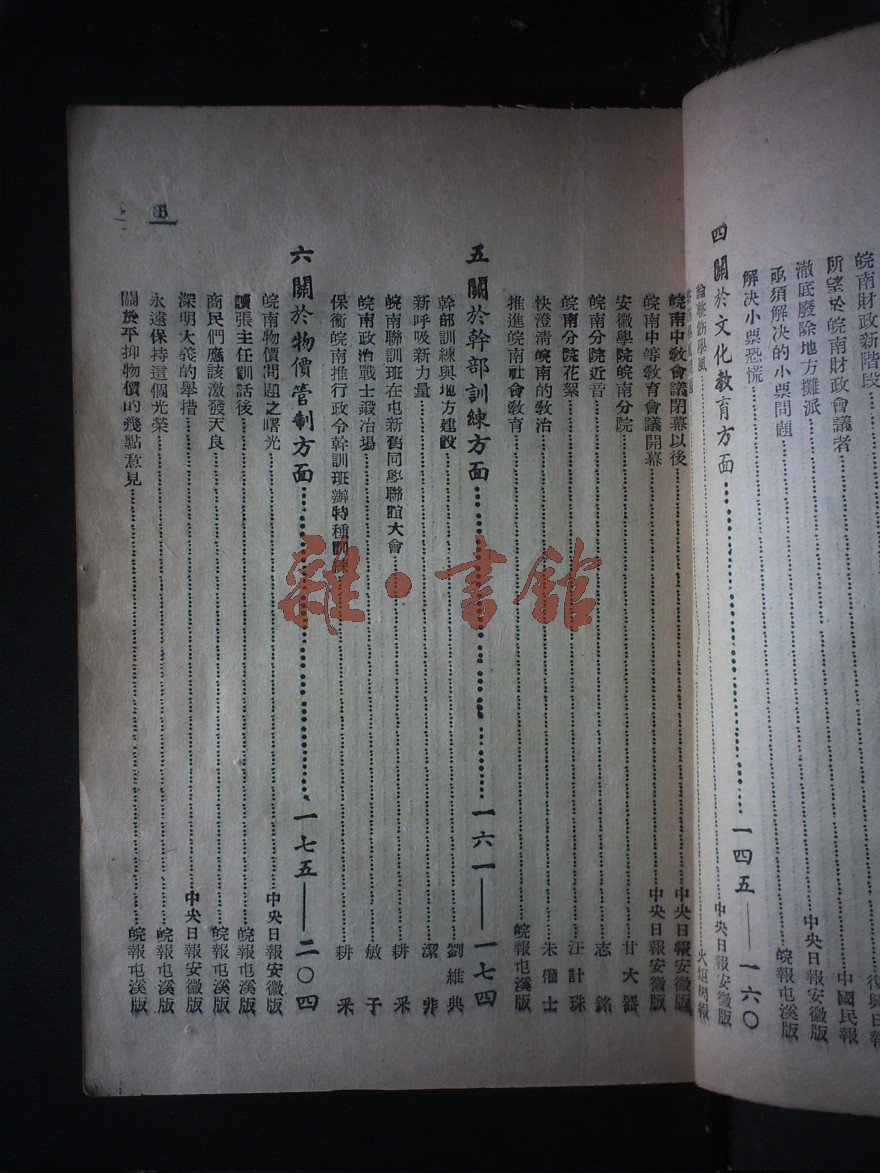 皖南財政新階段……復興日報
所望於皖南財政會議者……中國民報
澈底廢除地方攤派……中央日報安徽版
亟須解决的小票問題……皖報屯溪版
解决小票恐慌
四 關於文化教育方面……一四五——一六〇
中央日報安徽版
論整飭學風……火炬周報
皖南中教會議閉幕以後……中央日報安徽版
皖南中等教育會議開幕……中央日報安徽版
安徽學院皖南分院……甘大器
皖南分院近音……志銘
皖南分院花絮……汪計珠
快澄清皖南的教治……朱儒士
推進皖南社會教育……皖報屯溪版
五 關於幹部訓練方面……一六一——一七四
幹部訓練與地方建設……劉維典
新呼吸新力量……潔非
皖南聯訓班在屯新舊同學聯誼大會……耕釆
皖南政治戰士鍛冶場……敏予
保衛皖南推行政令幹訓班辦特種訓練……耕釆
六 關於物價管制方面……一七五——二〇四
皖南物價問題之曙光……中央日報安徽版
讀張主任訓話後……皖報屯溪版
商民們應該激發天良……皖報屯溪版
深明大義的舉措……中央日報安徽版
永遠保持這個光榮……皖報屯溪版
關於平抑物價的幾點意見……皖報屯溪版
雜·書館